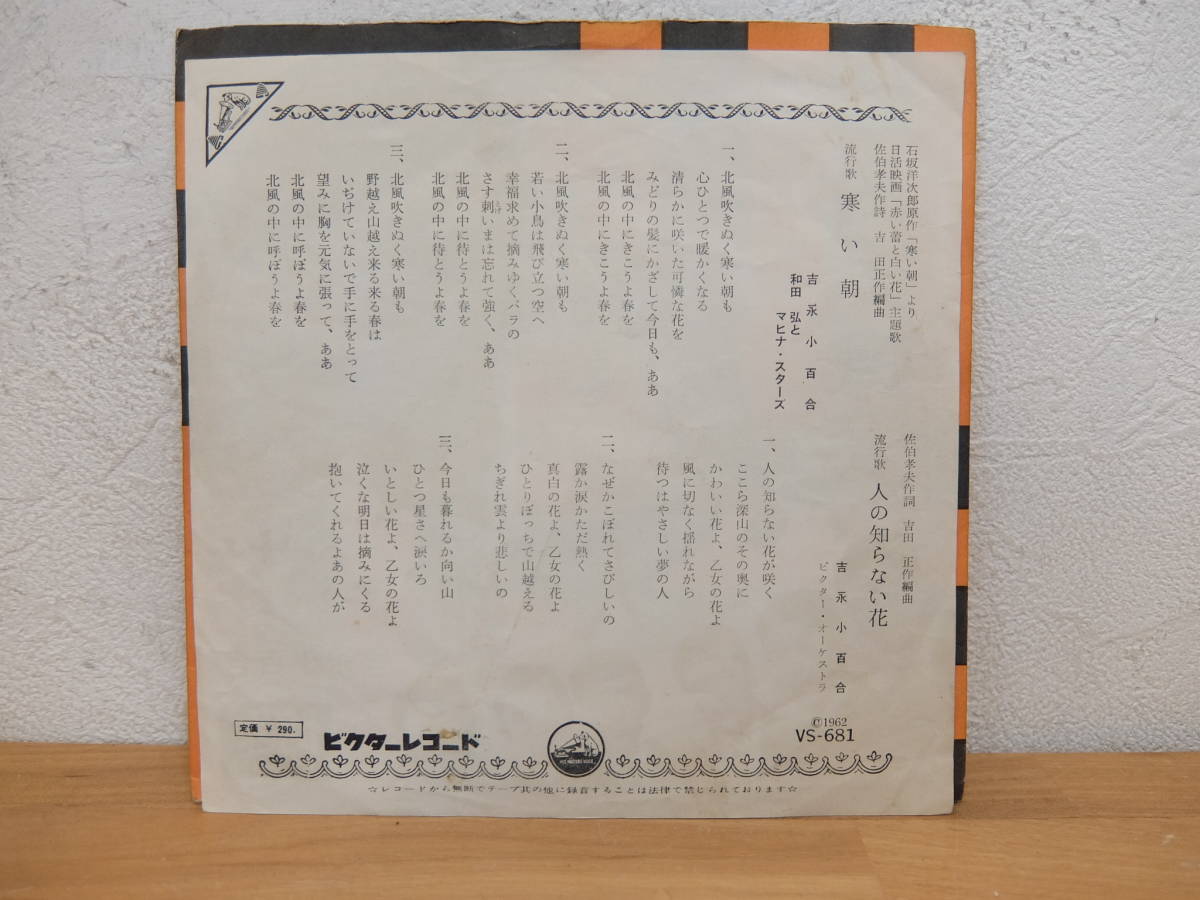 石坂洋次郎原作「寒い朝」より
日活映画「赤い蕾と白い花」主題歌
佐伯孝夫作詩 吉田正作編曲
流行歌 寒い朝
吉永小百合
和田弘と
マヒナ・スターズ
一、北風吹きぬく寒い朝も
心ひとつで暖かくなる
清らかに咲いた可憐な花を
みどりの髪にかざして今日も、ああ
北風の中にきこうよ春を
北風の中にきこうよ春を
二、北風吹きぬく寒い朝も
若い小鳥は飛び立つ空へ
幸福求めて摘みゆくバラの
さす刺いまは忘れて強く、ああ
北風の中に待とうよ春を
北風の中に待とうよ春を
三、北風吹きぬく寒い朝も
野越え山越え来る来る春は
いぢけていないで手に手をとって
望みに胸を元気に張って、ああ
北風の中に呼ぼうよ春を
北風の中に呼ぼうよ春を
佐伯孝夫作詞 吉田正作編曲
流行歌 人の知らない花
吉永小百合
ビクター・オーケストラ
一、人の知らない花が咲く
ここら深山のその奥に
かわいい花よ、乙女の花よ
風に切なく揺れながら
待つはやさしい夢の人
二、なぜかこぼれてさびしいの
露か涙かただ熱く
真白の花よ、乙女の花よ
ひとりぼっちで山越える
ちぎれ雲より悲しいの
三、今日も暮れるか向い山
ひとつ星さへ涙いろ
いとしい花よ、乙女の花よ
泣くな明日は摘みにくる
抱いてくれるよあの人が
定価 ¥ 290.
ビクターレコード
©1962
VS-681
☆レコードから無断でテープ其の他に録音することは法律で禁じられております☆